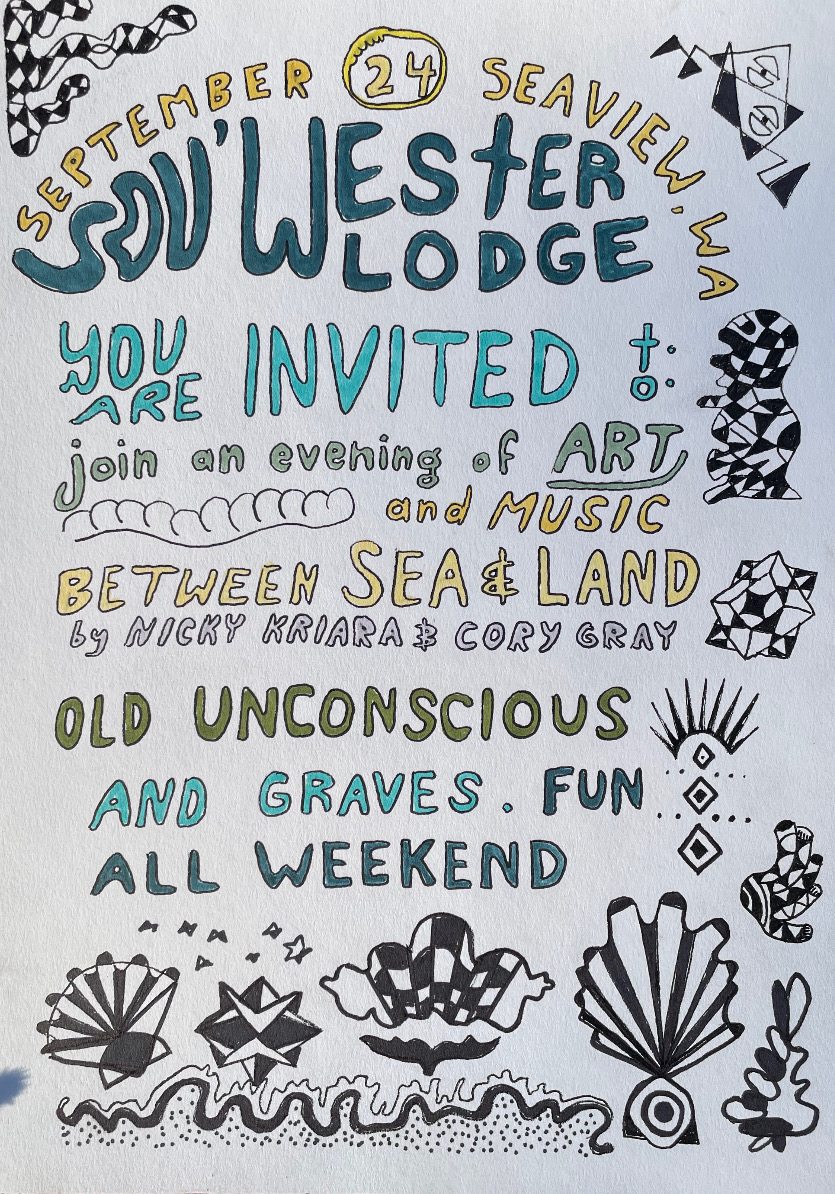 SEPTEMBER 24 SEAVIEW, WA
SOU'WESTER
LODGE
YOU ARE INVITED to:
join an evening of ART
and MUSIC
BETWEEN SEA & LAND
by NICKY KRIARA & CORY GRAY
OLD UNCONSCIOUS
AND GRAVES. FUN
ALL WEEKEND